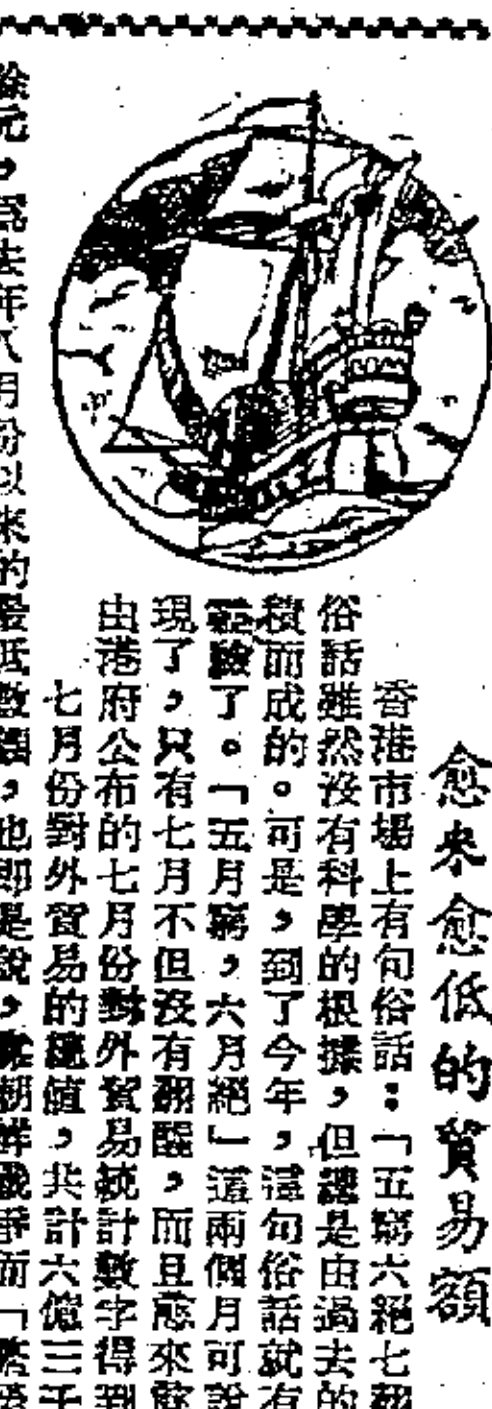 愈來愈低的貿易額
香港市場上有句俗話：「五窮六絕七翻
俗話雖然沒有科學的根據，但總是由過去的
積而成的。可是，到了今年，這句俗話就有
驗了。「五月窮，六月絕」這兩個月可說
現了，只有七月不但沒有翻醒，而且愈來
由港府公布的七月份對外貿易統計數字得到
七月份對外貿易的總值，共計六億三千
餘元，爲去年八月份以來的最低數額，也即是說，朝鮮戰爭前「